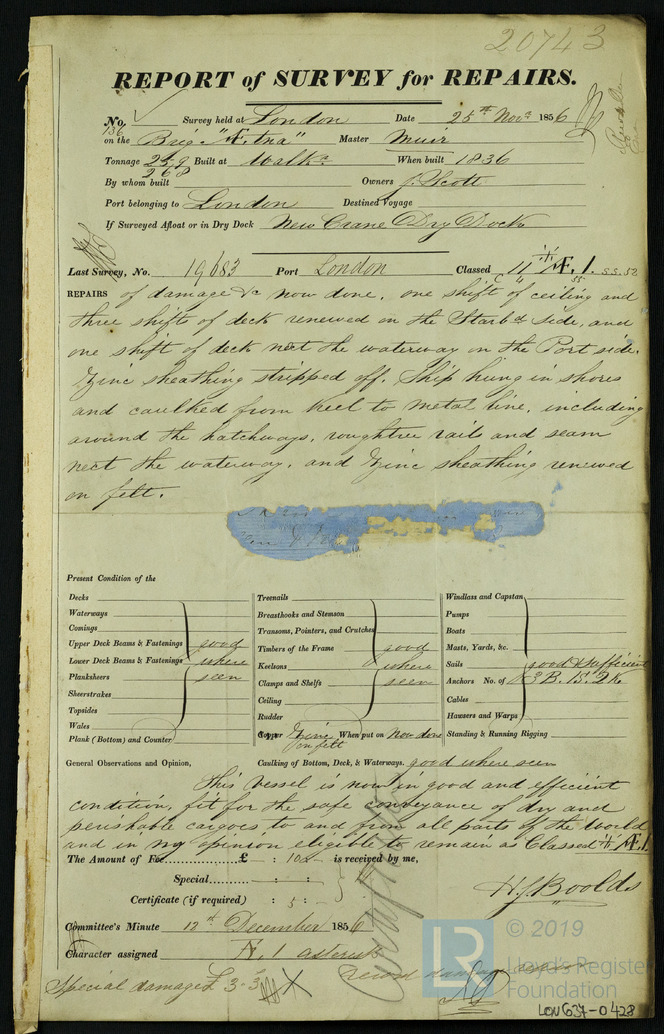 20743
REPORT of SURVEY for REPAIRS.
No. 136 Survey held at London Date 25th Novr 1856
on the Brig "Ætna" Master Muir
Tonnage 259 268 Built at When built 1836
By whom built Owners J. Scott
Port belonging to London Destined Voyage
If Surveyed Afloat or in Dry Dock New Crane Dry Dock
Last Survey, No. 19683 Port London Classed 11 * Æ. 1. 55 S.S. 52
REPAIRS of damage &c now done, one shift of ceiling and
three shifts of deck renewed on the Starbd side, and
one shift of deck next the waterway on the Port side.
Zinc sheathing stripped off. Ship hung in shores
and caulked from keel to metal line, including
around the hatchways, roughtree rails and seam
next the waterway, and Zinc sheathing renewed
on felt.
Present Condition of the
Decks
Waterways
Comings
Upper Deck Beams & Fastenings good
Lower Deck Beams & Fastenings where
Planksheers seen
Sheerstrakes
Topsides
Wales
Plank (Bottom) and Counter
Treenails
Breasthooks and Stemson
Transoms, Pointers, and Crutches
Timbers of the Frame good
Keelsons where
Clamps and Shelfs seen
Ceiling
Rudder
Copper Zinc on felt When put on Now done
Windlass and Capstan
Pumps
Boats
Masts, Yards, &c.
Sails good & sufficient
Anchors No. of 3 B. 1S. 2K
Cables
Hawsers and Warps
Standing & Running Rigging
General Observations and Opinion, Caulking of Bottom, Deck, & Waterways. good where seen
This vessel is now in good and efficient
condition, fit for the safe conveyance of dry and
perishable cargoes to and from all parts of the World
and in my opinion eligible to remain as Classed * Æ.1.
The Amount of Fee £ : 10 : is received by me,
Special : :
Certificate (if required) : 5 :
H J Boolds
Committee's Minute 12th December 1856
Character assigned Æ. 1 asterisk
Special damage £ 3 . 3
Record damage repairs
© 2019
LR
Lloyd's Register
Foundation
LON637-0428